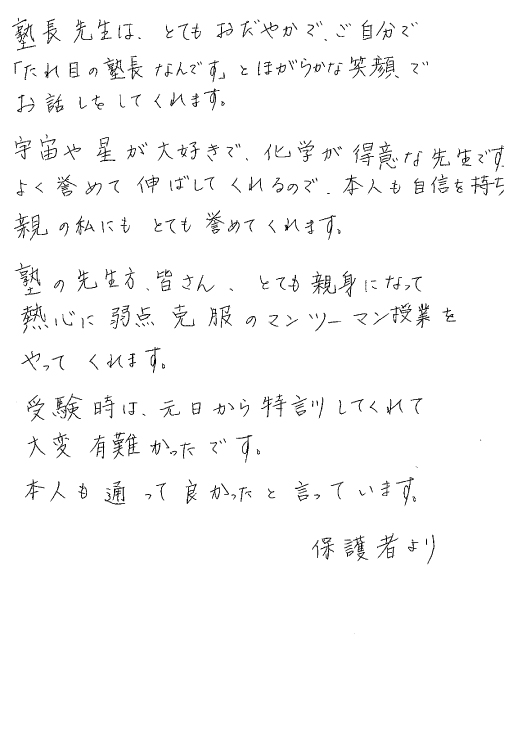 塾長先生は、とてもおだやかで、ご自分で
「たれ目の塾長なんです」とほがらかな笑顔で
お話しをしてくれます。
宇宙や星が大好きで、化学が得意な先生です
よく誉めて伸ばしてくれるので、本人も自信を持ち
親の私にもとても誉めてくれます。
塾の先生方、皆さん、とても親身になって
熱心に弱点克服のマンツーマン授業を
やってくれます。
受験時は、元日から特訓してくれて
大変有難かったです。
本人も通って良かったと言っています。
保護者より